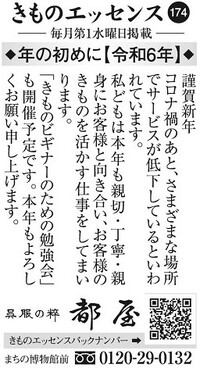 きものエッセンス 174
毎月第1水曜日掲載
◆年の初めに【令和6年】◆
謹賀新年
コロナ禍のあと、さまざまな場所
でサービスが低下しているといわ
れています。
私どもは本年も親切・丁寧・親
身にお客様と向き合い、お客様の
きものを活かす仕事をしてまい
ります。
「きものビギナーのための勉強会」
も開催予定です。本年もよろし
くお願い申し上げます。
呉服の粋 都屋
きものエッセンスバックナンバー
まちの博物館前 0120-29-0132